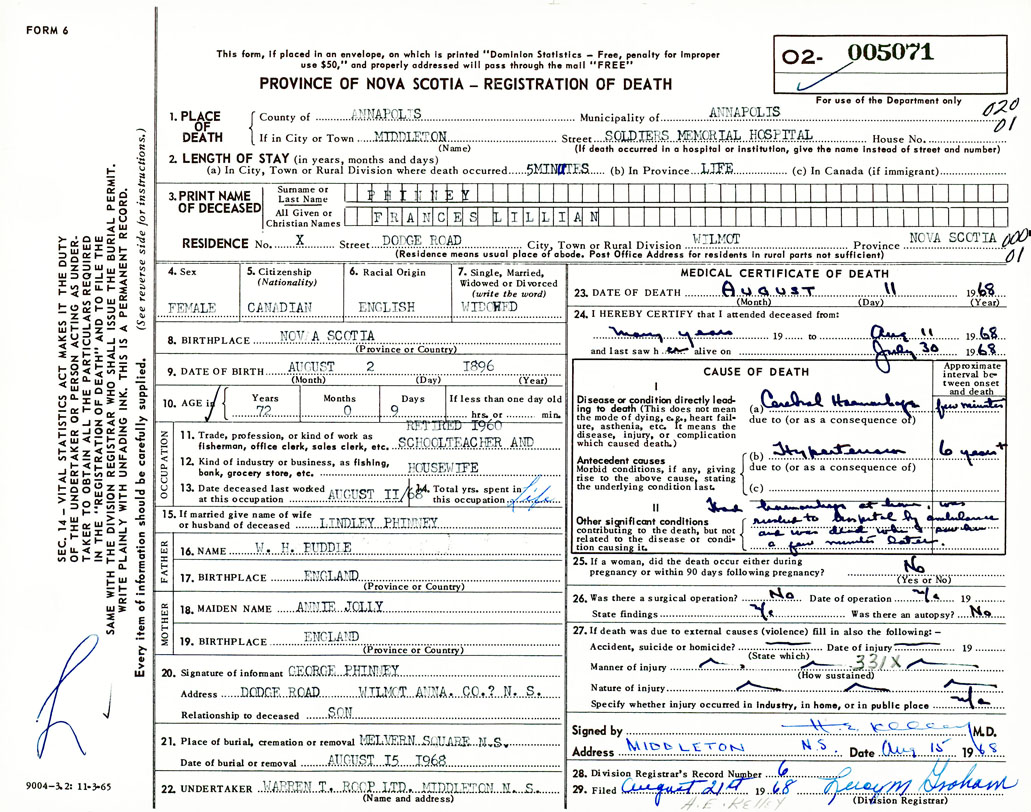 FORM 6
This form, if placed in an envelope, on which is printed "Dominion Statistics – Free, penalty for improper
use $50," and properly addressed will pass through the mail "FREE"
PROVINCE OF NOVA SCOTIA – REGISTRATION OF DEATH
02- 005071
For use of the Department only
020
01
1. PLACE OF DEATH
County of ANNAPOLIS Municipality of ANNAPOLIS
If in City or Town MIDDLETON Street SOLDIERS MEMORIAL HOSPITAL House No.
(Name) (If death occurred in a hospital or institution, give the name instead of street and number)
2. LENGTH OF STAY (in years, months and days)
(a) In City, Town or Rural Division where death occurred 5MINUTES (b) In Province LIFE (c) In Canada (if immigrant)
3. PRINT NAME OF DECEASED
Surname or Last Name PHINNEY
All Given or Christian Names FRANCES LILLIAN
RESIDENCE No. X Street DODGE ROAD City, Town or Rural Division WILMOT Province NOVA SCOTIA
000
01
(Residence means usual place of abode. Post Office Address for residents in rural parts not sufficient)
4. Sex
FEMALE
5. Citizenship
(Nationality)
CANADIAN
6. Racial Origin
ENGLISH
7. Single, Married,
Widowed or Divorced
(write the word)
WIDOWED
8. BIRTHPLACE NOVA SCOTIA
(Province or Country)
9. DATE OF BIRTH AUGUST 2 1896
(Month) (Day) (Year)
10. AGE is
Years Months Days If less than one day old
72 0 9 hrs. or min.
OCCUPATION
RETIRED 1960
11. Trade, profession, or kind of work as
fisherman, office clerk, sales clerk, etc. SCHOOLTEACHER AND
12. Kind of industry or business, as fishing,
bank, grocery store, etc. HOUSEWIFE
13. Date deceased last worked
at this occupation AUGUST 11/68
14. Total yrs. spent in
this occupation Life
15. If married give name of wife
or husband of deceased LINDLEY PHINNEY
FATHER
16. NAME W. H. PUDDLE
17. BIRTHPLACE ENGLAND
(Province or Country)
MOTHER
18. MAIDEN NAME ANNIE JOLLY
19. BIRTHPLACE ENGLAND
(Province or Country)
20. Signature of informant GEORGE PHINNEY
Address DODGE ROAD WILMOT ANNA. CO.? N. S.
Relationship to deceased SON
21. Place of burial, cremation or removal MELVERN SQUARE N.S.
Date of burial or removal AUGUST 15 1968
22. UNDERTAKER WARREN T. ROOP LTD. MIDDLETON N. S.
(Name and address)
MEDICAL CERTIFICATE OF DEATH
23. DATE OF DEATH AUGUST 11 1968
(Month) (Day) (Year)
24. I HEREBY CERTIFY that I attended deceased from:
many years 19 to Aug 11 1968
and last saw h er alive on July 30 1968
CAUSE OF DEATH
Approximate
interval be-
tween onset
and death
I
Disease or condition directly lead-
ing to death (This does not mean
the mode of dying, e.g., heart fail-
ure, asthenia, etc. It means the
disease, injury, or complication
which caused death.)
(a) Cerebral Haemorrhage few minutes
due to (or as a consequence of)
Antecedent causes
Morbid conditions, if any, giving
rise to the above cause, stating
the underlying condition last.
(b) Hypertension 6 years+
due to (or as a consequence of)
(c)
II
Other significant conditions
contributing to the death, but not
related to the disease or condi-
tion causing it.
Had haemorrhage at home, was
rushed to hospital by ambulance
and was dead when I saw her
a few minutes later.
25. If a woman, did the death occur either during
pregnancy or within 90 days following pregnancy? No
(Yes or No)
26. Was there a surgical operation? No Date of operation n/a 19
State findings n/a Was there an autopsy? No
27. If death was due to external causes (violence) fill in also the following: –
Accident, suicide or homicide? Date of injury 19
(State which)
Manner of injury 331X
(How sustained)
Nature of injury
Specify whether injury occurred in industry, in home, or in public place n/a
Signed by H. E. Kelley M.D.
Address MIDDLETON N.S. Date Aug 15 1968
28. Division Registrar's Record Number 6
29. Filed August 21st 1968 Lucy M Graham
(Division Registrar)
H. E. KELLEY
SEC. 14 – VITAL STATISTICS ACT MAKES IT THE DUTY
OF THE UNDERTAKER OR PERSON ACTING AS UNDER-
TAKER TO OBTAIN ALL THE PARTICULARS REQUIRED
IN THE "REGISTRATION OF DEATH" AND TO FILE THE
SAME WITH THE DIVISION REGISTRAR WHO SHALL ISSUE THE BURIAL PERMIT.
WRITE PLAINLY WITH UNFADING INK. THIS IS A PERMANENT RECORD.
Every item of information should be carefully supplied. (See reverse side for instructions.)
9004-3.2: 11-3-65